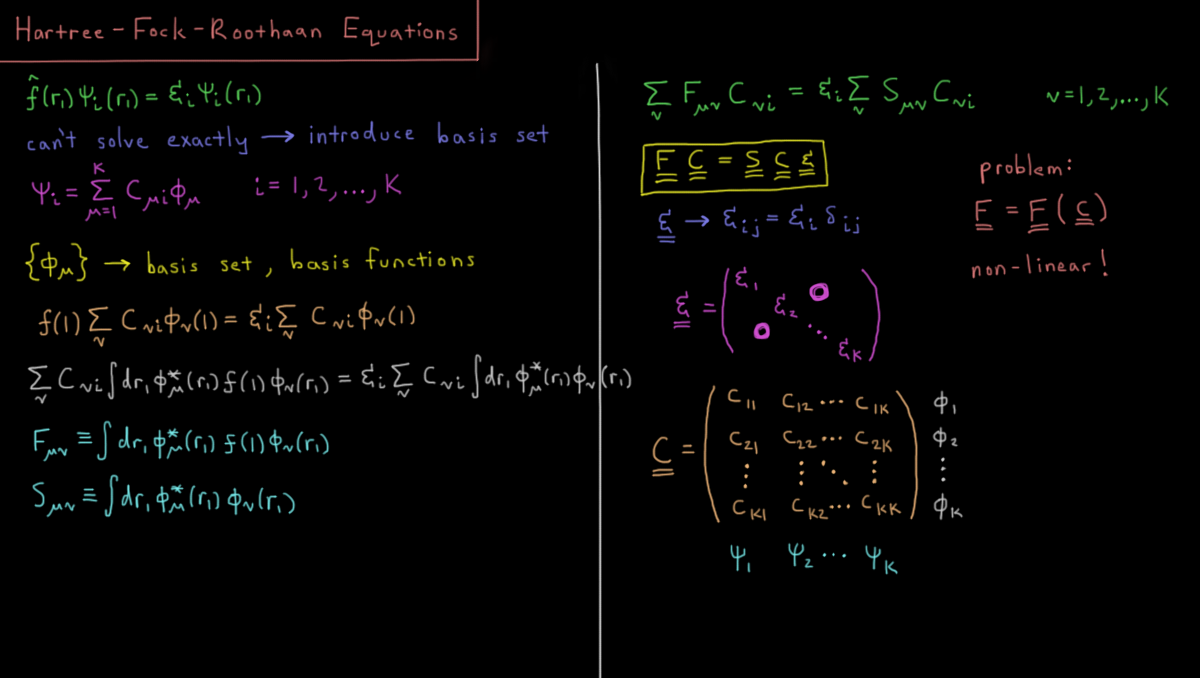 Hartree-Fock-Roothaan Equations
f̂(r₁)ψᵢ(r₁) = εᵢψᵢ(r₁)
can't solve exactly → introduce basis set
ψᵢ = Σ_{μ=1}^{K} C_{μi}ϕ_μ i = 1, 2, ..., K
{ϕ_μ} → basis set, basis functions
f(1) Σ_ν C_{νi}ϕ_ν(1) = εᵢ Σ_ν C_{νi}ϕ_ν(1)
Σ_ν C_{νi} ∫dr₁ ϕ_μ*(r₁) f(1) ϕ_ν(r₁) = εᵢ Σ_ν C_{νi} ∫dr₁ ϕ_μ*(r₁)ϕ_ν(r₁)
F_{μν} ≡ ∫dr₁ ϕ_μ*(r₁) f(1) ϕ_ν(r₁)
S_{μν} ≡ ∫dr₁ ϕ_μ*(r₁) ϕ_ν(r₁)
Σ_ν F_{μν} C_{νi} = εᵢ Σ_ν S_{μν} C_{νi} ν = 1, 2, ..., K
F C = S C ε
ε → ε_{ij} = εᵢ δ_{ij}
problem:
F = F(C)
non-linear!
ε = (ε₁ 0
ε₂
0 ⋱
ε_K)
C = (C₁₁ C₁₂ ⋯ C_{1K}) ϕ₁
C₂₁ C₂₂ ⋯ C_{2K} ϕ₂
⋮ ⋮ ⋱ ⋮ ⋮
C_{K1} C_{K2} ⋯ C_{KK} ϕ_K
ψ₁ ψ₂ ⋯ ψ_K